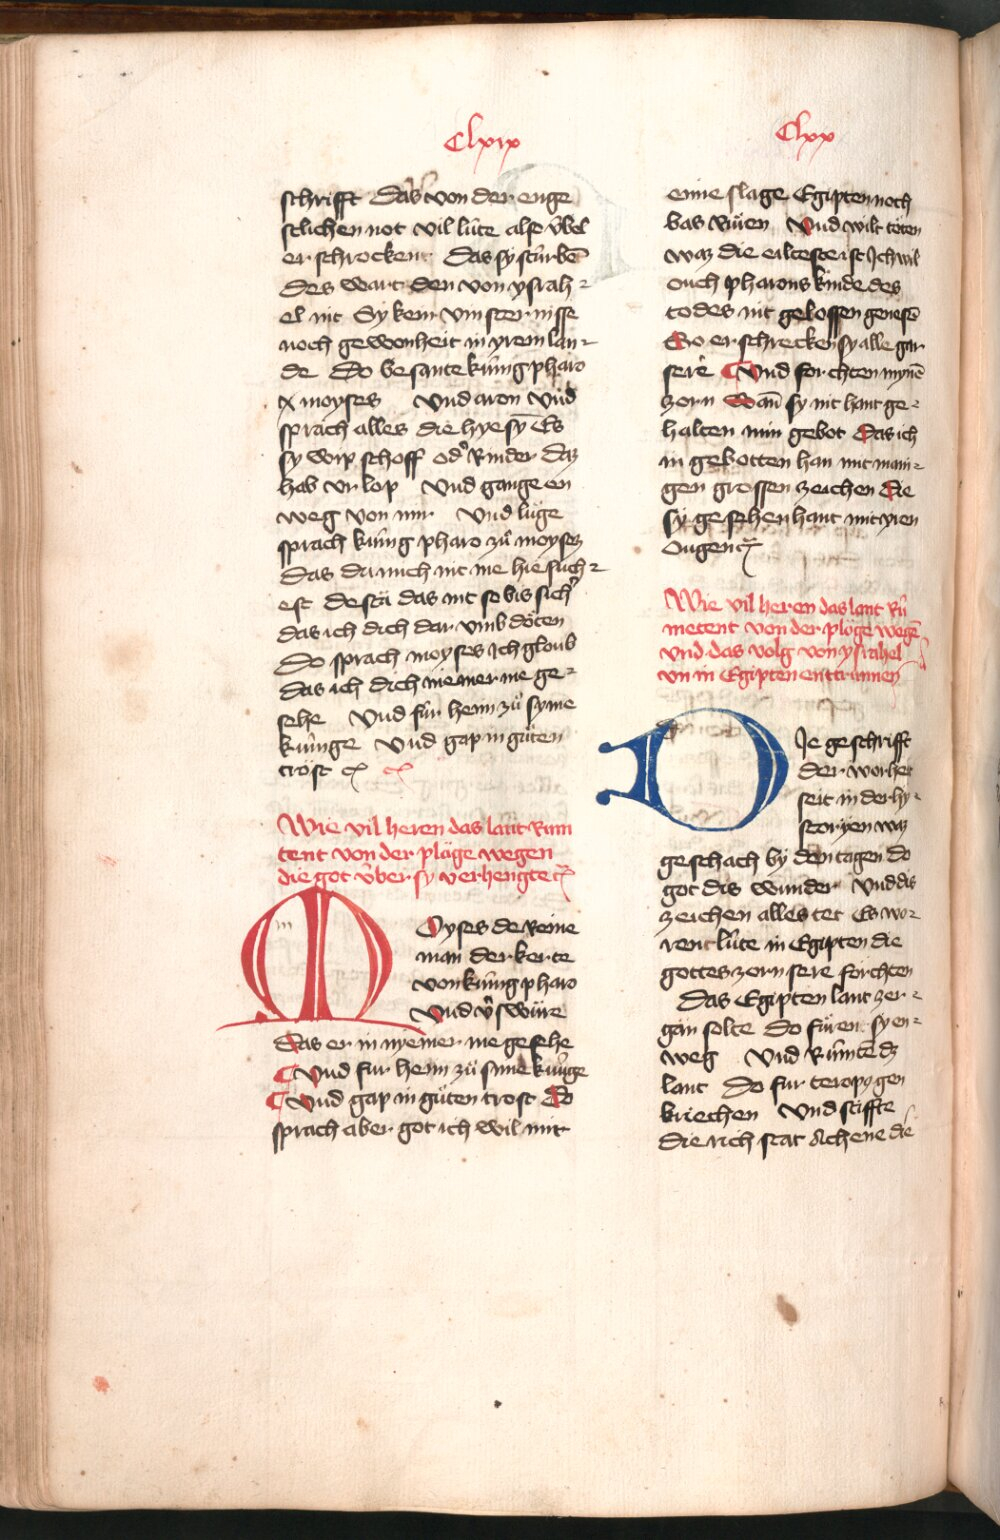 Clxix
schrifft Das von der enge
stlichen not vil lüte also übel
erschrocken Das sy stürbē
des wart den von ysrah-
el nit Sy kem vinsternisse
noch gewonheit in yrem lan-
de Do besante küng pharo
x moyses Vnd aron Vnd
sprach alles die hye sy Es
sy wip schoff od' Rinder daz
hab vrlop Vnd gange en
weg von mir Vnd lüge
sprach küng pharo zů moyses
Das du mich nit me hie such-
est desta das nit so bis sich'
das ich dich dar vmb döten
do sprach moyses Ich gloub
das ich dich niemer me ge-
sehe Vnd für henn zů syme
künge Vnd gap in gůten
trost
Wie vil heren das lant Rum
tent von der pläge wegen
die got über sy verhengte
Oyses de Reine
man der kerte
von küng pharo
Vnd v̊swüre
Das er in nyemer me gesehe
Vnd fur henn zů sime künge
Vnd gap in gůten trost Do
sprach aber got ich wil mit
Clxx
eine slage Egipten noch
bas Vnd wilt töten
waz die eilteste ist Ich wil
ouch pharons kinde des
todes nit gelossen genesē
So erschrecken sy alle gar
sere Vnd forchten mynē
zorn Wañ sy nit hant ge-
halten min gebot Das ich
in gebotten han mit mani-
gen grossen zeichen Die
sy gesehen hant mit yren
Ougen
Wie vil heren das lant Rů
metent von der plöge wegē
Vnd das volg von ysrahel
vn in Egipten enttrunnen
Je geschrifft
der worheit
seit in der hy-
storyen waz
geschach by den tagen do
got dis wunder Vnd dis
zeichen alles tet Es wo-
rent lüte in Egipten die
gottes zorn sere förchten
Das Egipten lant zer-
gan solte Do füren sy en-
weg Vnd Rümtē dz
lant Do fur teropygen
kriechen Vnd stiffte
die rich stat Achene die